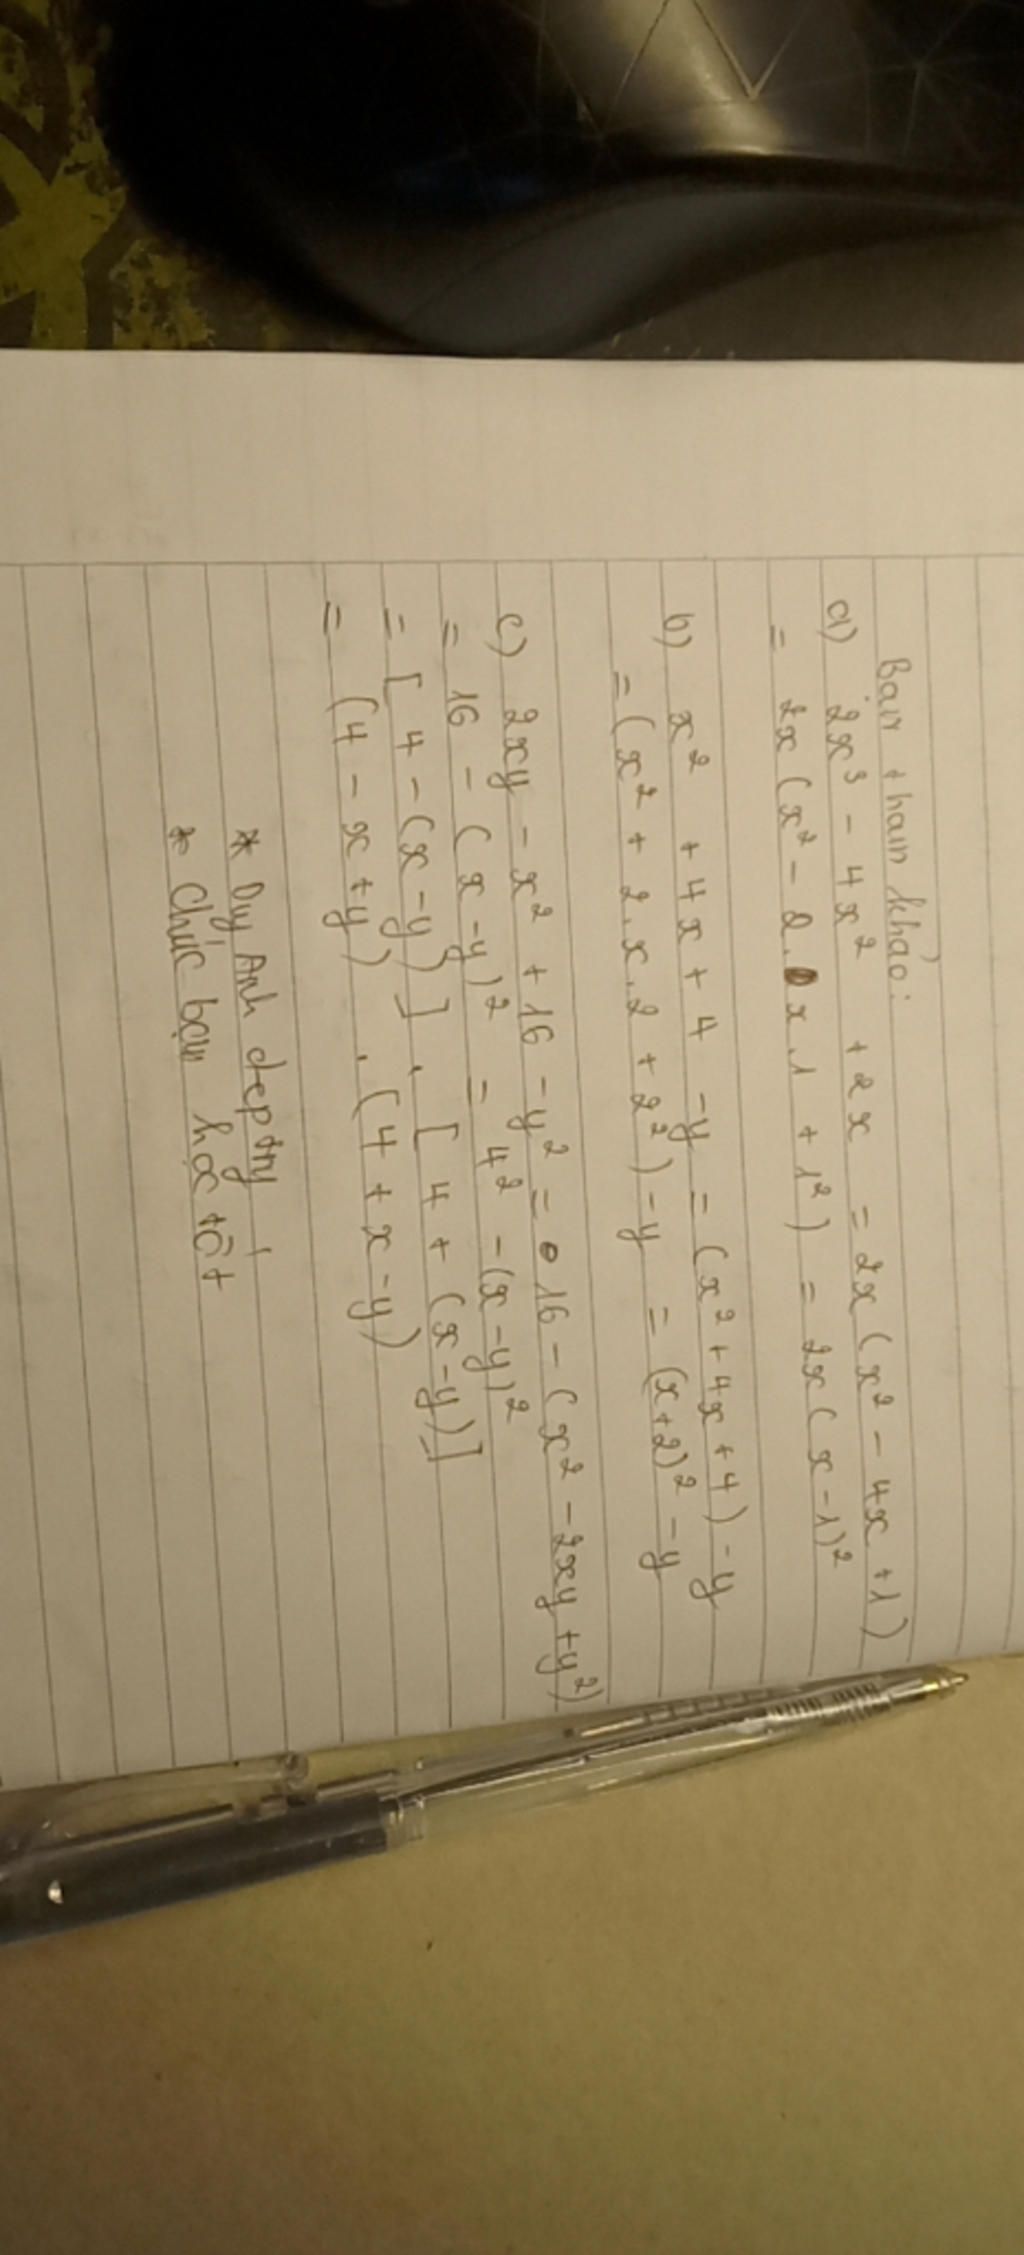 Bạn tham khảo:
a) 2x³ - 4x² + 2x = 2x(x² - 4x + 1)
= 2x(x² - 2.x.1 + 1²) = 2x(x-1)²
b) x² + 4x + 4 - y = (x² + 4x + 4) - y
= (x² + 2.x.2 + 2²) - y = (x+2)² - y
c) 2xy - x² + 16 - y² = 16 - (x² - 2xy + y²)
= 16 - (x-y)² = 4² - (x-y)²
= [4 - (x-y)] . [4 + (x-y)]
= (4 - x + y) . (4 + x - y)
* Duy Anh đep try
* Chúc bạn học tốt